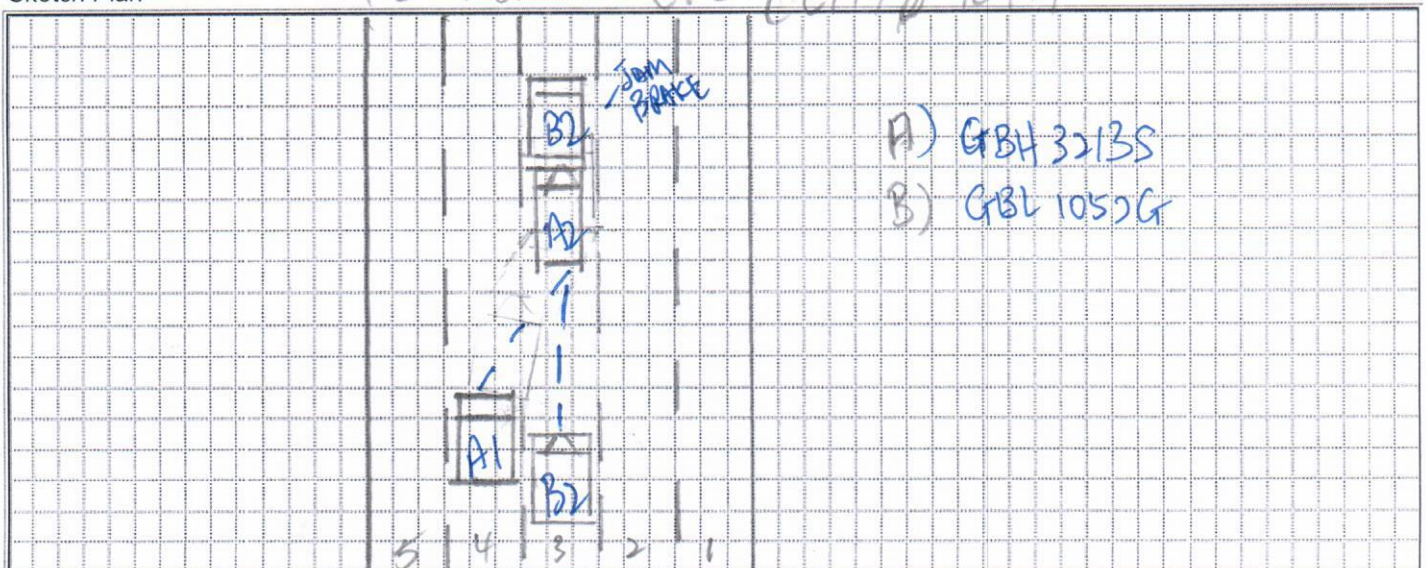 Sketch Plan
JAM
BRAKE
B2
A2
A1
B2
5 4 3 2 1
A) GBH 3213S
B) GBL 1052G